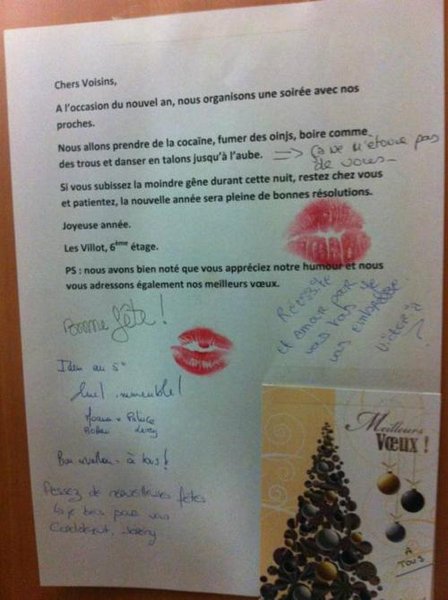 Chers Voisins,
A l'occasion du nouvel an, nous organisons une soirée avec nos
proches.
Nous allons prendre de la cocaïne, fumer des oinjs, boire comme
des trous et danser en talons jusqu'à l'aube.
ça ne m'étonne pas
de vous
Si vous subissez la moindre gêne durant cette nuit, restez chez vous
et patientez, la nouvelle année sera pleine de bonnes résolutions.
Joyeuse année.
Les Villot, 6ème étage.
PS : nous avons bien noté que vous appréciez notre humour et nous
vous adressons également nos meilleurs vœux.
Bonne fête !
Réussite
et Amour pour
vous tous je
vous embrasse
Idem au 5e
Quel immeuble !
à tous !
Passez de merveilleuses fêtes
pour vous
Cordialement, Jérémy
Meilleurs
Vœux !
à
Tous